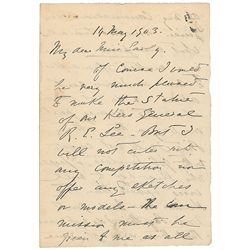 14 May 1903.
My dear Miss
Of Course I would
be very much pleased
to make the Statue
of our Hero General
R. E. Lee - But I
will not enter into
any competition nor
offer any sketches
or models - the com
mission must be
given to me as all